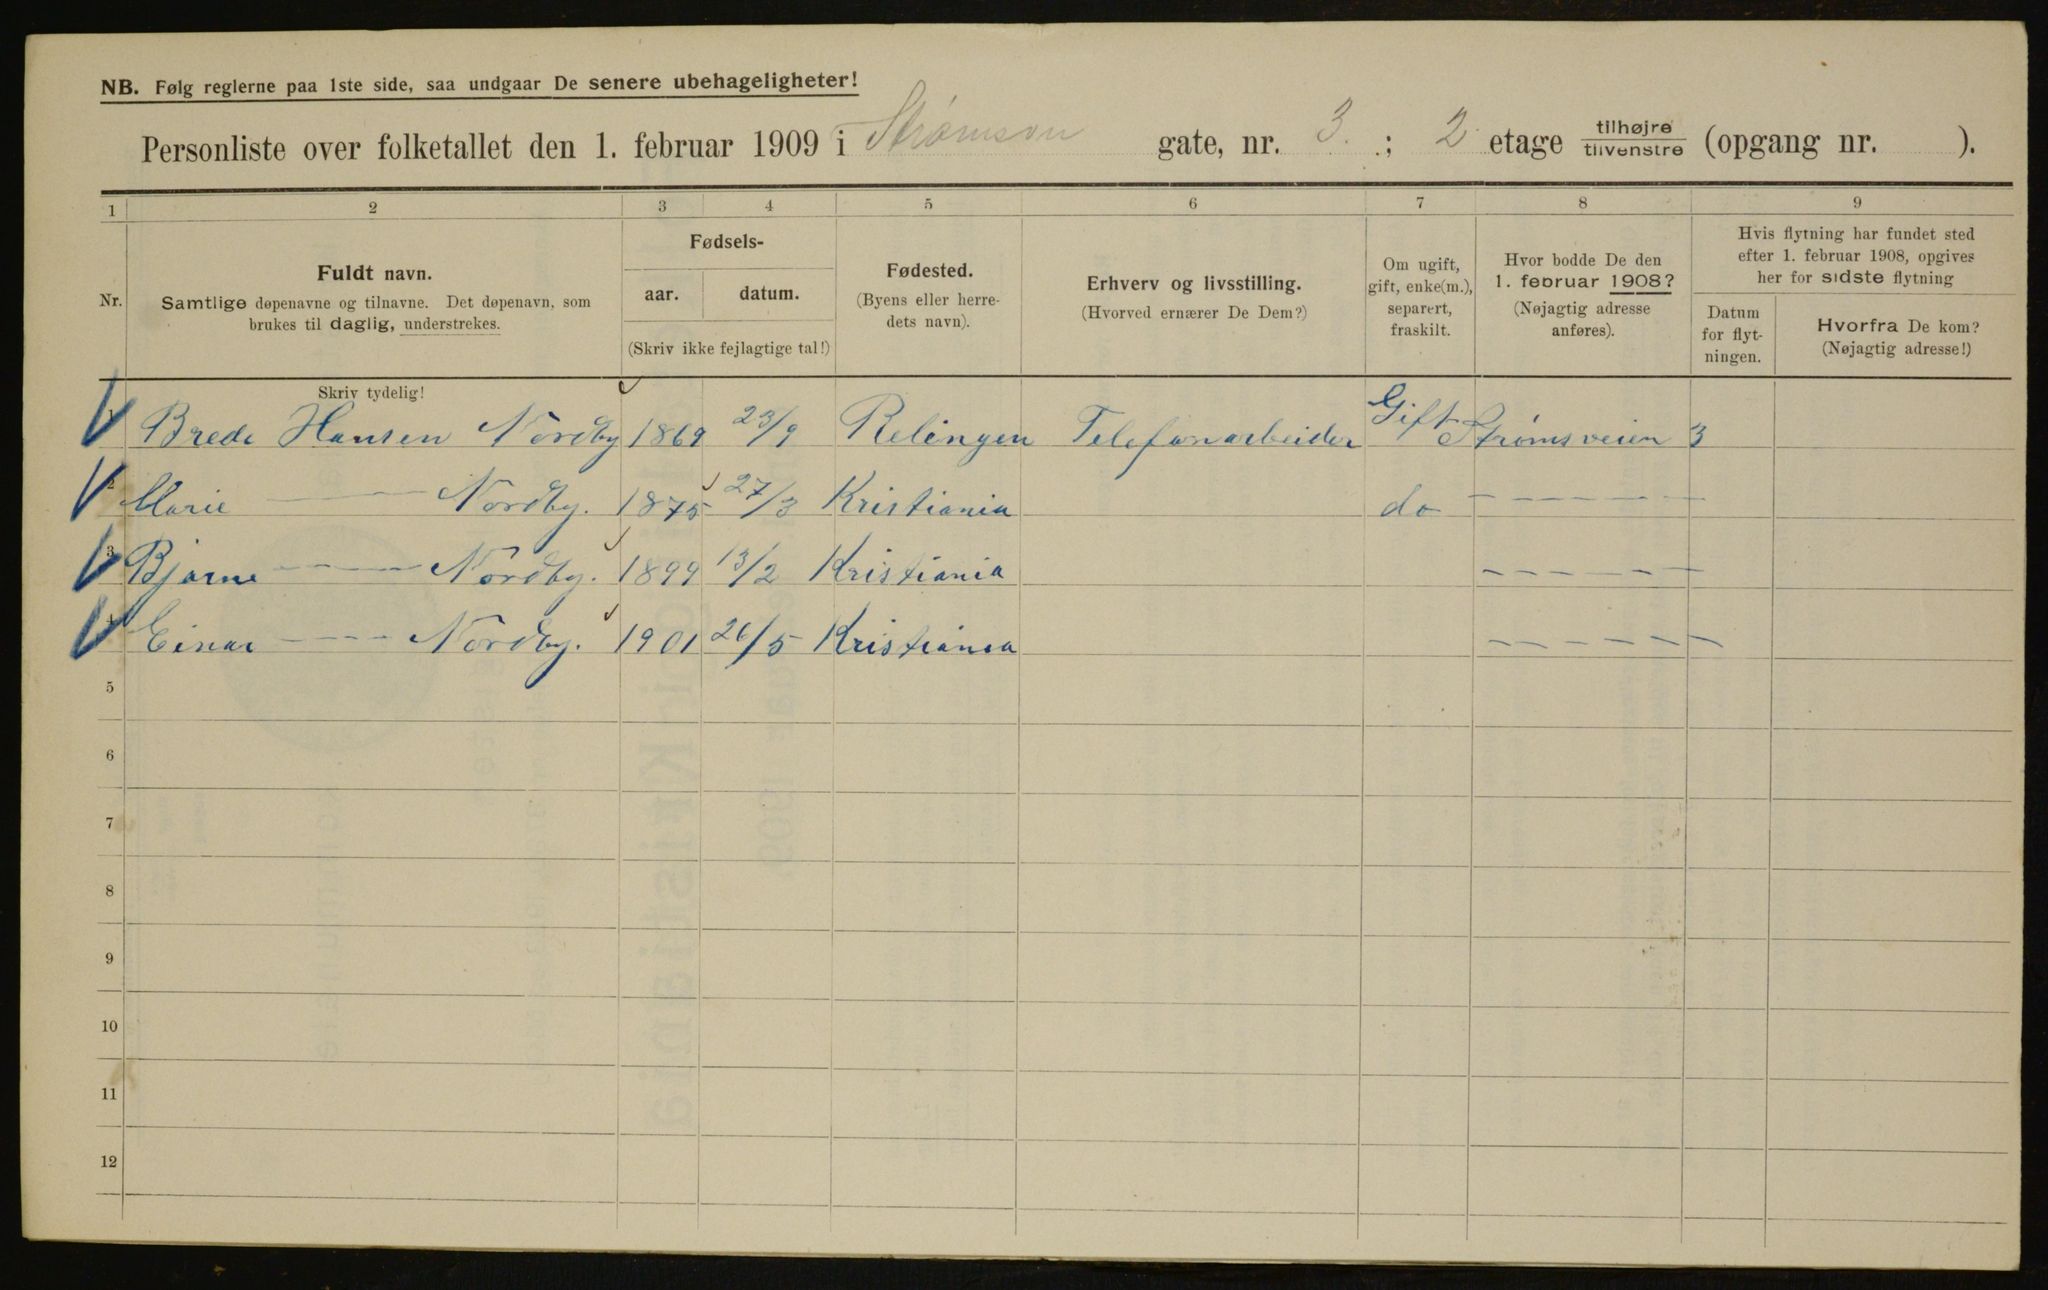 NB. Følg reglerne paa 1ste side, saa undgaar De senere ubehageligheter!
Personliste over folketallet den 1. februar 1909 i Strømsvn gate, nr. 3. ; 2 etage tilhøjre/tilvenstre (opgang nr. ).
1 2 3 4 5 6 7 8 9
Nr.
Fuldt navn.
Samtlige døpenavne og tilnavne. Det døpenavn, som
brukes til daglig, understrekes.
Fødsels-
aar. datum.
(Skriv ikke fejlagtige tal!)
Fødested.
(Byens eller herre-
dets navn).
Erhverv og livsstilling.
(Hvorved ernærer De Dem?)
Om ugift,
gift, enke(m.),
separert,
fraskilt.
Hvor bodde De den
1. februar 1908?
(Nøjagtig adresse
anføres).
Hvis flytning har fundet sted
efter 1. februar 1908, opgives
her for sidste flytning
Datum
for flyt-
ningen.
Hvorfra De kom?
(Nøjagtig adresse!)
Skriv tydelig!
1 Brede Hansen Nordby 1869 23/9 Relingen Telefonarbeider Gift Strømsveien 3
2 Marie — Nordby. 1875 27/3 Kristiania do - - - - - -
3 Bjarne — Nordby. 1899 13/2 Kristiania - - - - - -
4 Einar - - - Nordby. 1901 26/5 Kristiania - - - - - -
5
6
7
8
9
10
11
12